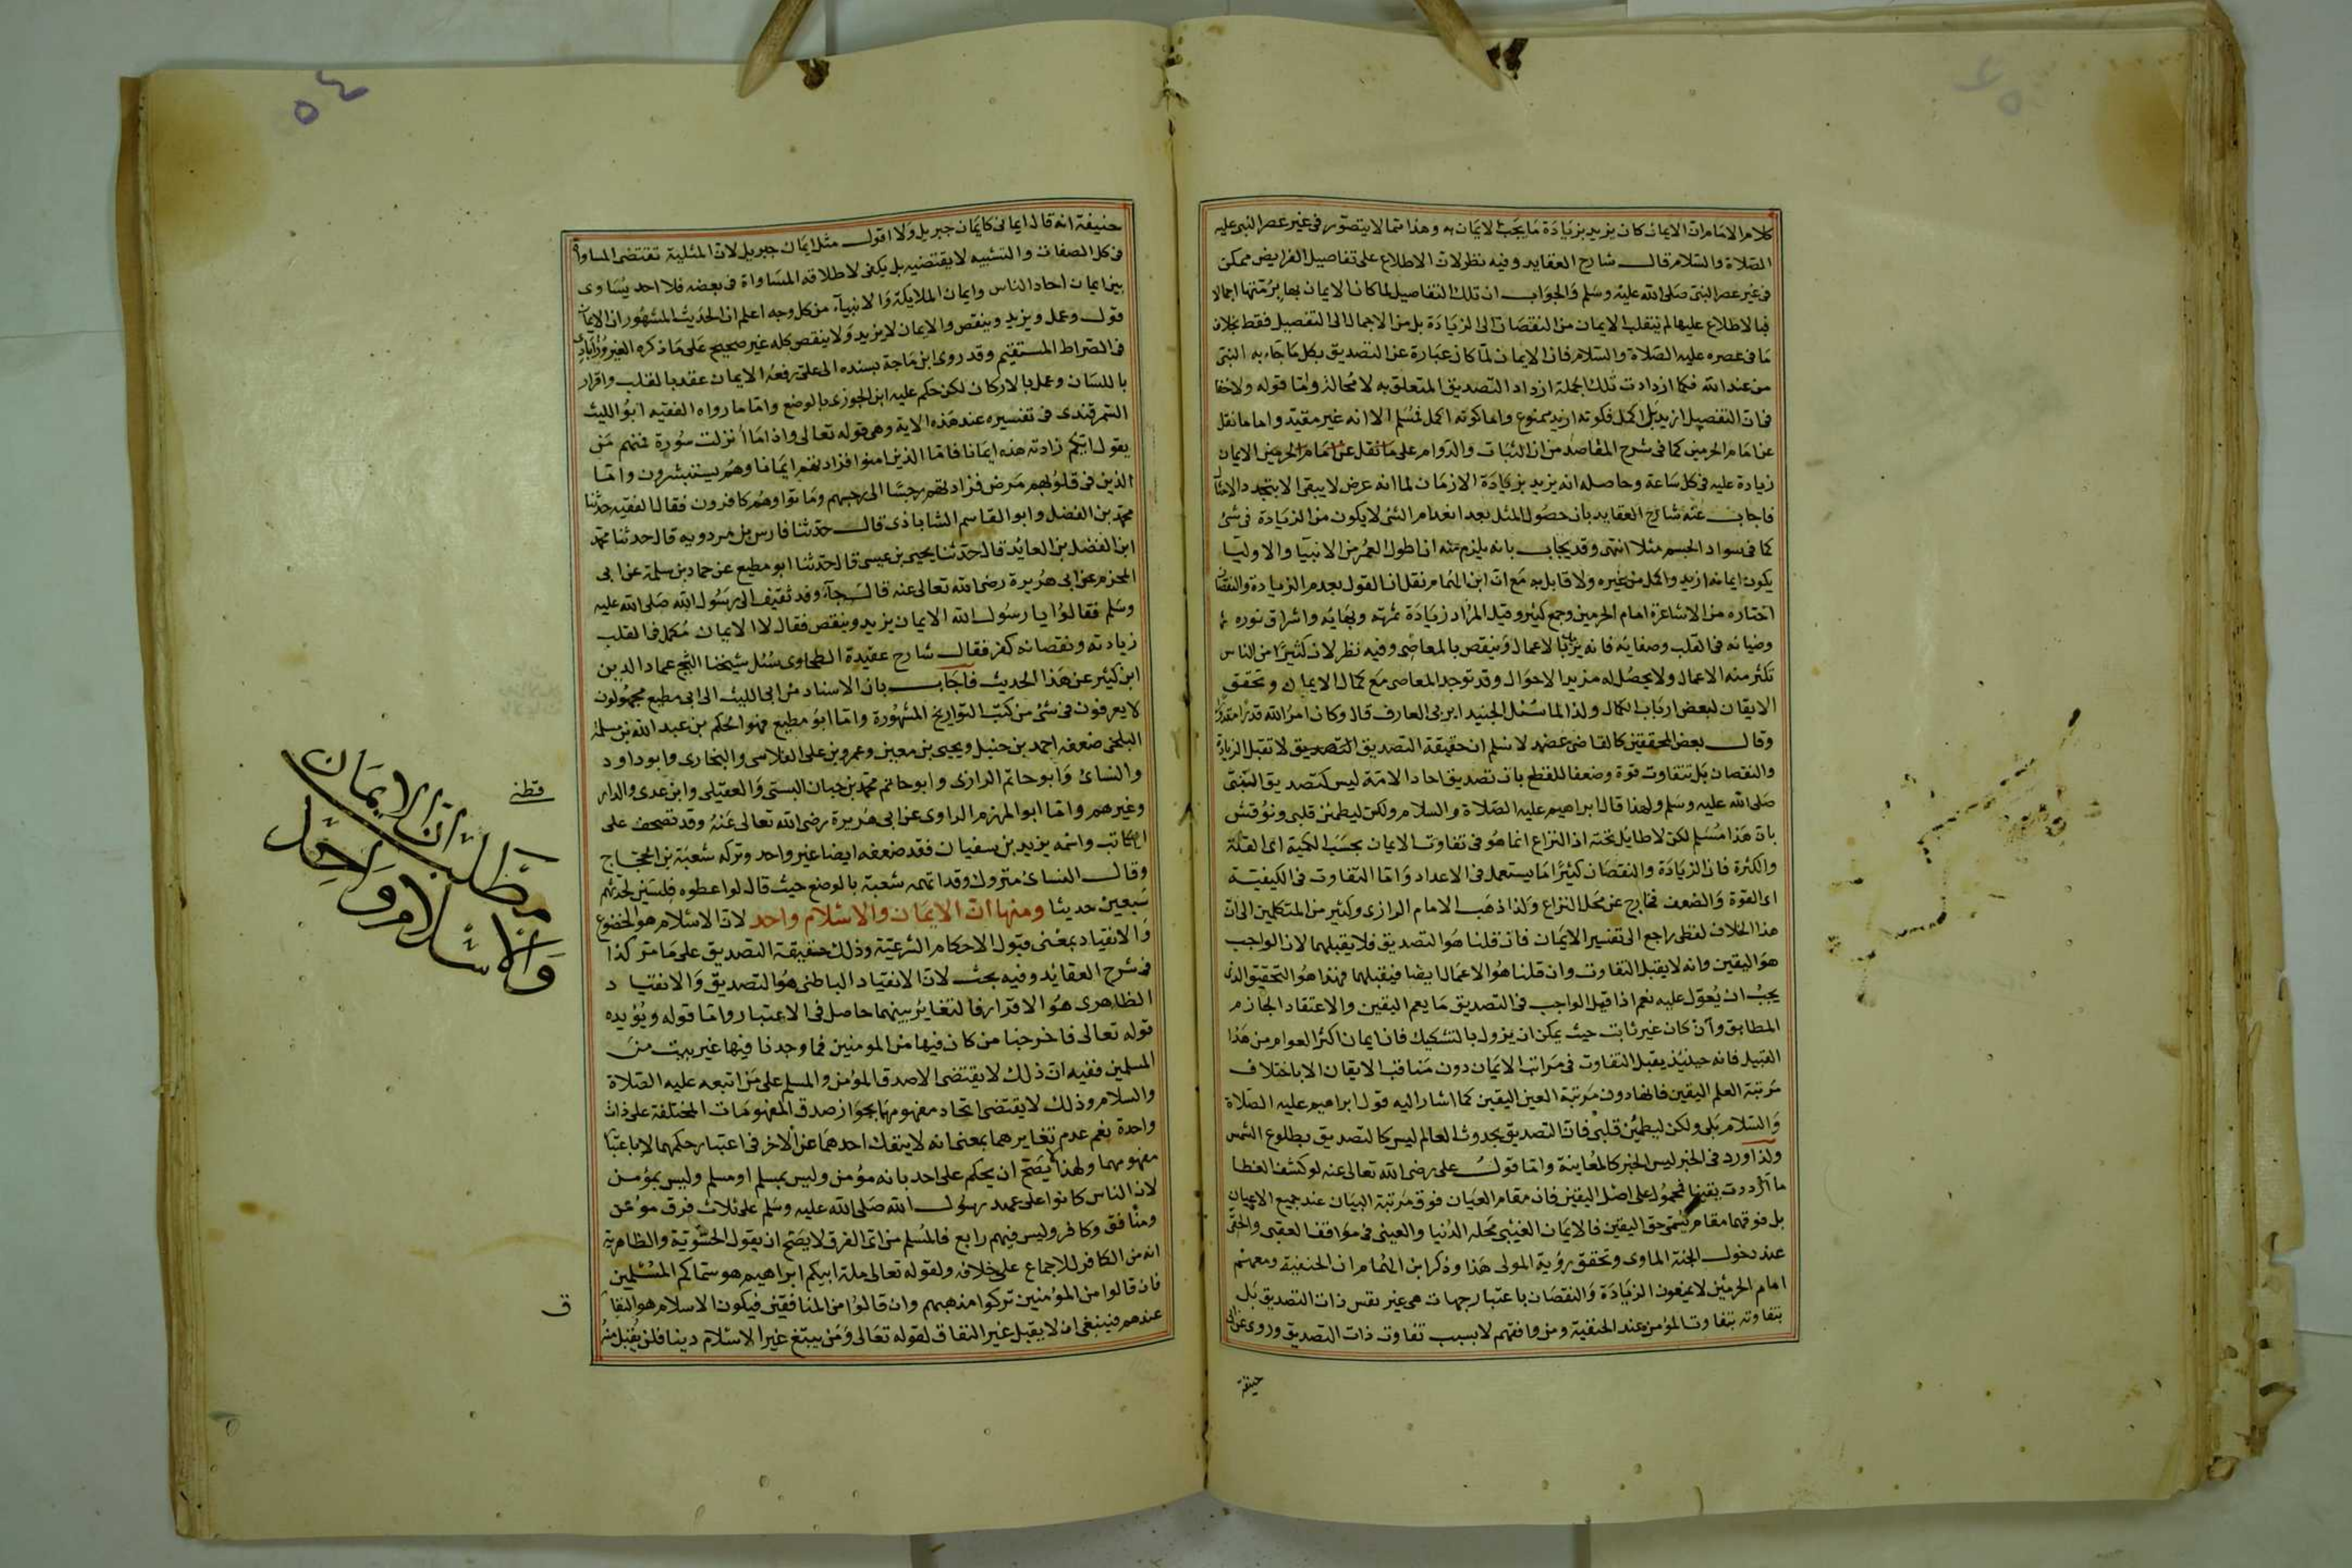 كلام الامام ان الايمان كان يزيد بزيادة ما يجب الايمان به وهذا مما لا يتصور فى غير عصر النبى عليه
الصلاة والسلام قال شارح العقايد وفيه نظر لان الاطلاع على تفاصيل الفرايض ممكن
فى غير عصر النبى صلى الله عليه وسلم والجواب ان تلك التفاصيل لما كان الايمان بها برمتها اجمالا
فبالاطلاع عليها لم ينقلب الايمان من النقصان الى الزيادة بل من الاجمال الى التفصيل فقط بخلاف
ما فى عصره عليه الصلاة والسلام فان الايمان لما كان عبارة عن التصديق بكل ما جاء به النبى
من عند الله فكلما ازدادت تلك الجملة ازداد التصديق المتعلق به لا محالة واما قوله ولا خفا
فى ان التفصيل ازيد بل اكمل فكونه ازيد ممنوع واما كونه اكمل فمسلم الا انه غير مقيد واما ما نقل
عن امام الحرمين كما فى شرح المقاصد من ان الثبات والدوام على ما نقل عن امام الحرمين الايمان
زيادة عليه فى كل ساعة وحاصله انه يزيد بزيادة الازمان لما انه عرض لا يبقى الا بتجدد الامثال
فاجاب عنه شارح العقايد بان حصول المثل بعد انعدام الشى لا يكون من الزيادة فى شئ
كما فى سواد الجسم مثلا انتهى وقد يجاب بانه يلزم منه ان اطول العمر من الانبيا والاوليا
يكون ايمانه ازيد واكمل من غيره ولا قايل به مع ان ابن الهمام نقل ان القول بعدم الزيادة والنقصان
اختاره من الاشاعرة امام الحرمين وجمع كثير وقيل المراد زيادة ثمرته وبهايه واشراق نوره
وضيائه فى القلب وصفايه فانه يزيد بالاعمال وينقص بالمعاصى وفيه نظر لان كثيرا من الناس
تكثر منه الاعمال ولا يحصل له مزيد الاحوال وقد توجد المعاصى مع كمال الايمان وتحقق
الايقان لبعض ارباب الكمال ولذا لما سئل الجنيد ايزنى العارف قال وكان امر الله قدرا مقدورا
وقال بعض المحققين كالقاضى عضد لا نسلم ان حقيقة التصديق التصديق لا تقبل الزيادة
والنقصان بل تتفاوت قوة وضعفا للقطع بان تصديق احاد الامة ليس كتصديق النبى
صلى الله عليه وسلم ولهذا قال ابراهيم عليه الصلاة والسلام ولكن ليطمئن قلبى ونوقش
بان هذا مسلم لكن لا طايل تحته اذ النزاع انما هو فى تفاوت الايمان بحسب الكمية اى القلة
والكثرة فان الزيادة والنقصان كثيرا ما يستعمل فى الاعداد واما التفاوت فى الكيفية
اى القوة والضعف فخارج عن محل النزاع ولذا ذهب الامام الرازى وكثير من المتكلمين الى ان
هذا الخلاف لفظى راجع الى تفسير الايمان فان قلنا هو التصديق فلا يقبلهما لان الواجب
هو اليقين وانه لا يقبل التفاوت وان قلنا هو الاعمال ايضا فيقبلهما فهذا هو التحقيق الذى
يجب ان يعول عليه نعم اذا قيل الواجب فى التصديق ما يعم اليقين والاعتقاد الجازم
المطابق وان كان غير ثابت حيث يمكن ان يزول بالتشكيك فان ايمان اكثر العوام من هذا
القبيل فانه حينئذ يقبل التفاوت فى مراتب الايمان دون مناقب الايقان الا باختلاف
مرتبة العلم اليقين فانها دون مرتبة العين اليقين كما اشار اليه قول ابراهيم عليه الصلاة
والسلام بلى ولكن ليطمئن قلبى فان التصديق بحدوث العالم ليس كالتصديق بطلوع الشمس
ولذا ورد فى الخبر ليس الخبر كالمعاينة واما قول على رضى الله تعالى عنه لو كشف الغطا
ما ازددت يقينا فمحمول على اصل اليقين فان مقام العيان فوق مرتبة البيان عند جميع الاعيان
بل فوقهما مقام يسمى حق اليقين فالايمان الغيبى محله الدنيا والعينى فى مواقف العقبى والحقى
عند دخول الجنة الماوى وتحقق رؤية المولى هذا وذكر ابن الهمام ان الحنفية ومعهم
امام الحرمين لا يمنعون الزيادة والنقصان باعتبار جهات هى غير نفس ذات التصديق بل
بتفاوته يتفاوت المؤمن عند الحنفية ومن وافقهم لا بسبب تفاوت ذات التصديق وروى عن ابى
حنيفة
٥٤
حنيفة انه قال ايمانى كايمان جبريل ولا اقول مثل ايمان جبريل لان المثلية تقتضى المساواة
فى كل الصفات والتشبيه لا يقتضيه بل يكفى لاطلاقه المساواة فى بعضه فلا احد يساوى
بين ايمان احاد الناس وايمان الملايكة والانبيآء من كل وجه اعلم ان الحديث المشهور ان الايمان
قول وعمل ويزيد وينقص والايمان لا يزيد ولا ينقص كله غير صحيح على ما ذكره الفيروزآبادى
فى الصراط المستقيم وقد روى ابن ماجة بسنده الى على يرفعه الايمان عقد بالقلب واقرار
باللسان وعمل بالاركان لكن حكم عليه ابن الجوزى بالوضع واما ما رواه الفقيه ابو الليث
السمرقندى فى تفسيره عند هذه الاية وهى قوله تعالى واذا ما انزلت سورة فمنهم من
يقول ايكم زادته هذه ايمانا فاما الذين امنوا فزادتهم ايمانا وهم يستبشرون واما
الذين فى قلوبهم مرض فزادتهم رجسا الى رجسهم وماتوا وهم كافرون فقال الفقيه حدثنا
محمد بن الفضل وابو القاسم الشاباذى قال حدثنا فارس بن مردويه قال حدثنا محمد
ابن الفضل بن العابد قال حدثنا يحيى بن عيسى قال حدثنا ابو مطيع عن حماد بن سلمة عن ابى
المحزم عن ابى هريرة رضى الله تعالى عنه قال جآء وفد ثقيف الى رسول الله صلى الله عليه
وسلم فقالوا يا رسول الله الايمان يزيد وينقص فقال لا الايمان مكمل فى القلب
زيادته ونقصانه كفر فقال شارح عقيدة الطحاوى سئل شيخنا الشيخ عماد الدين
ابن كثير عن هذا الحديث فاجاب بان الاسناد من ابى الليث الى ابى مطيع مجهولون
لا يعرفون فى شئ من كتب التواريخ المشهورة واما ابو مطيع فهو الحكم بن عبد الله بن مسلمة
البلخى ضعفه احمد بن حنبل ويحيى بن معين وعمرو بن على الفلاسى والبخارى وابو داود
والنسائ وابو حاتم الرازى وابو حاتم محمد بن حبان البستى والعقيلى وابن عدى والدار
قطنى
وغيرهم واما ابو المهزم الراوى عن ابى هريرة رضى الله تعالى عنه وقد تصحف على
الكاتب واسمه يزيد بن سفيان فقد ضعفه ايضا غير واحد وتركه شعبة بن الحجاج
وقال النساى متروك وقد اتهمه شعبة بالوضع حيث قال لو اعطوه فلسين لحدثهم
سبعين حديثا ومنها ان الايمان والاسلام واحد لان الاسلام هو الخضوع
والانقياد بمعنى قبول الاحكام الشرعية وذلك حقيقة التصديق على ما مر كذا
فى شرح العقائد وفيه بحث لان الانقياد الباطنى هو التصديق والانقياد
الظاهرى هو الاقرار فالتغاير بينهما حاصل فى الاعتبار واما قوله ويؤيده
قوله تعالى فاخرجنا من كان فيها من المومنين فما وجدنا فيها غير بيت من
المسلمين ففيه ان ذلك لا يقتضى الا صدق المؤمن والمسلم على من اتبعه عليه الصلاة
والسلام وذلك لا يقتضى اتحاد مفهومهما بجواز صدق المفهومات المختلفة على ذات
واحدة نعم عدم تغايرهما بمعنى انه لا ينفك احدهما عن الاخر فى اعتبار حكمهما لا باعتبار
مفهومهما ولهذا لا يصح ان يحكم على احد بانه مؤمن وليس بمسلم او مسلم وليس بمؤمن
لان الناس كانوا على عهد رسول الله صلى الله عليه وسلم على ثلاث فرق مؤمن
ومنافق وكافر وليس فيهم رابع فالمسلم من اى الفرق لا يصح ان يقول الحشوية والظاهرية
انه من الكافر للاجماع على خلافه ولقوله تعالى ملة ابيكم ابراهيم هو سماكم المسلمين
فان قالوا من المؤمنين تركوا مذهبهم وان قالوا من المنافقين فيكون الاسلام هو النفا
ق
عندهم فينبغى ان لا يقبل غير النفاق لقوله تعالى ومن يبتغ غير الاسلام دينا فلن يقبل منه
مطلب ان الايمان
والاسلام واحد